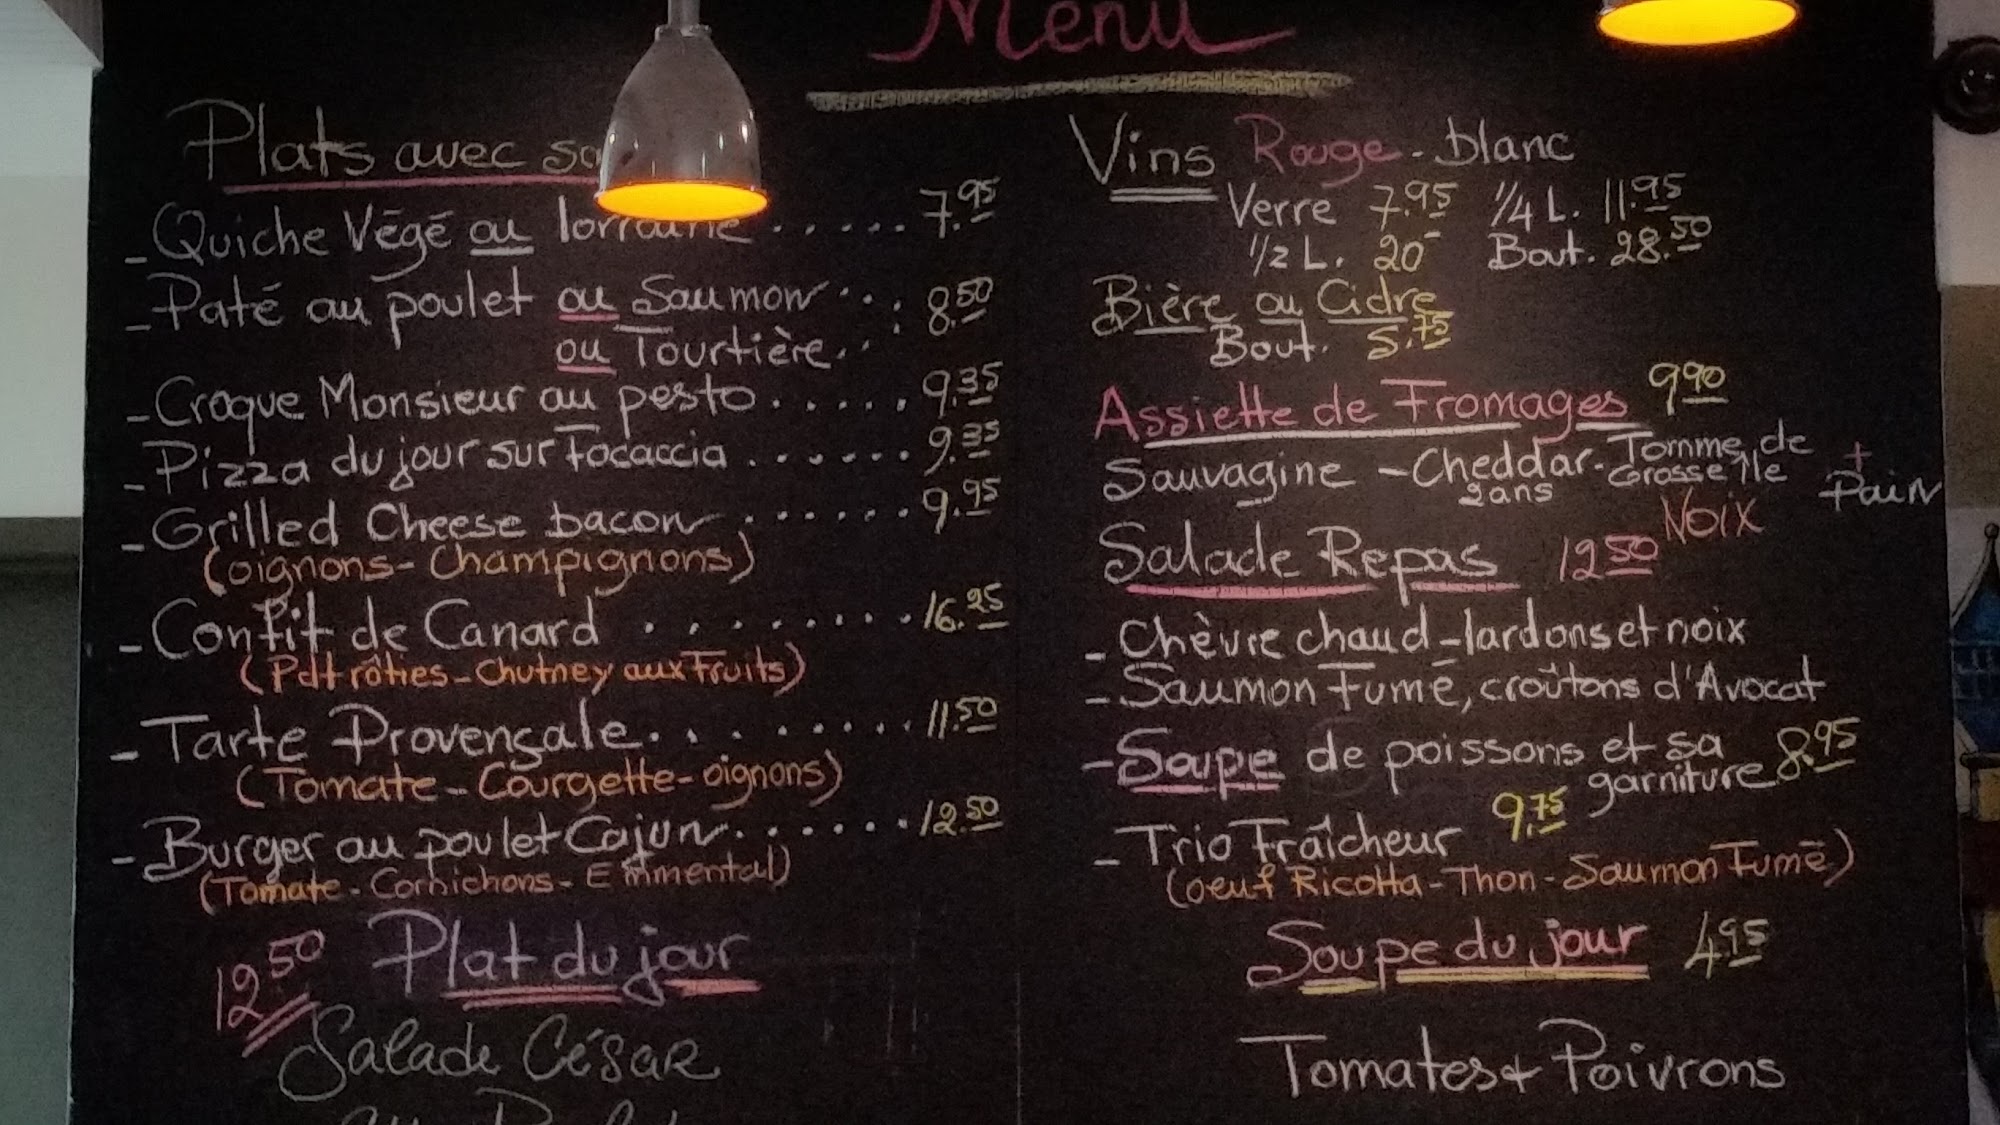 Menu
Plats avec
- Quiche Végé ou lorraine ...... 7.95
- Paté au poulet ou Saumon ... 8.50
ou Tourtière..
- Croque Monsieur au pesto ..... 9.35
- Pizza du jour sur Focaccia ....... 9.35
- Grilled Cheese bacon ....... 9.95
(oignons - Champignons)
- Confit de Canard ........ 16.25
(Pdt rôties - Chutney aux Fruits)
- Tarte Provençale ......... 11.50
(Tomate - Courgette - oignons)
- Burger au poulet Cajun ....... 12.50
(Tomate - Cornichons - Emmental)
12.50 Plat du jour
Salade César
au
Vins Rouge - blanc
Verre 7.95 1/4 L. 11.95
1/2 L. 20 Bout. 28.50
Bière ou Cidre
Bout. 5.75
Assiette de Fromages 9.90
Sauvagine - Cheddar - Tomme de
2ans Grosse Ile + Pain
Noix
Salade Repas 12.50
- Chèvre chaud - lardons et noix
- Saumon Fumé, croûtons d'Avocat
- Soupe de poissons et sa
garniture 8.95
- Trio Fraîcheur 9.75
(oeuf Ricotta - Thon - Saumon Fumé)
Soupe du jour 4.95
Tomates + Poivrons